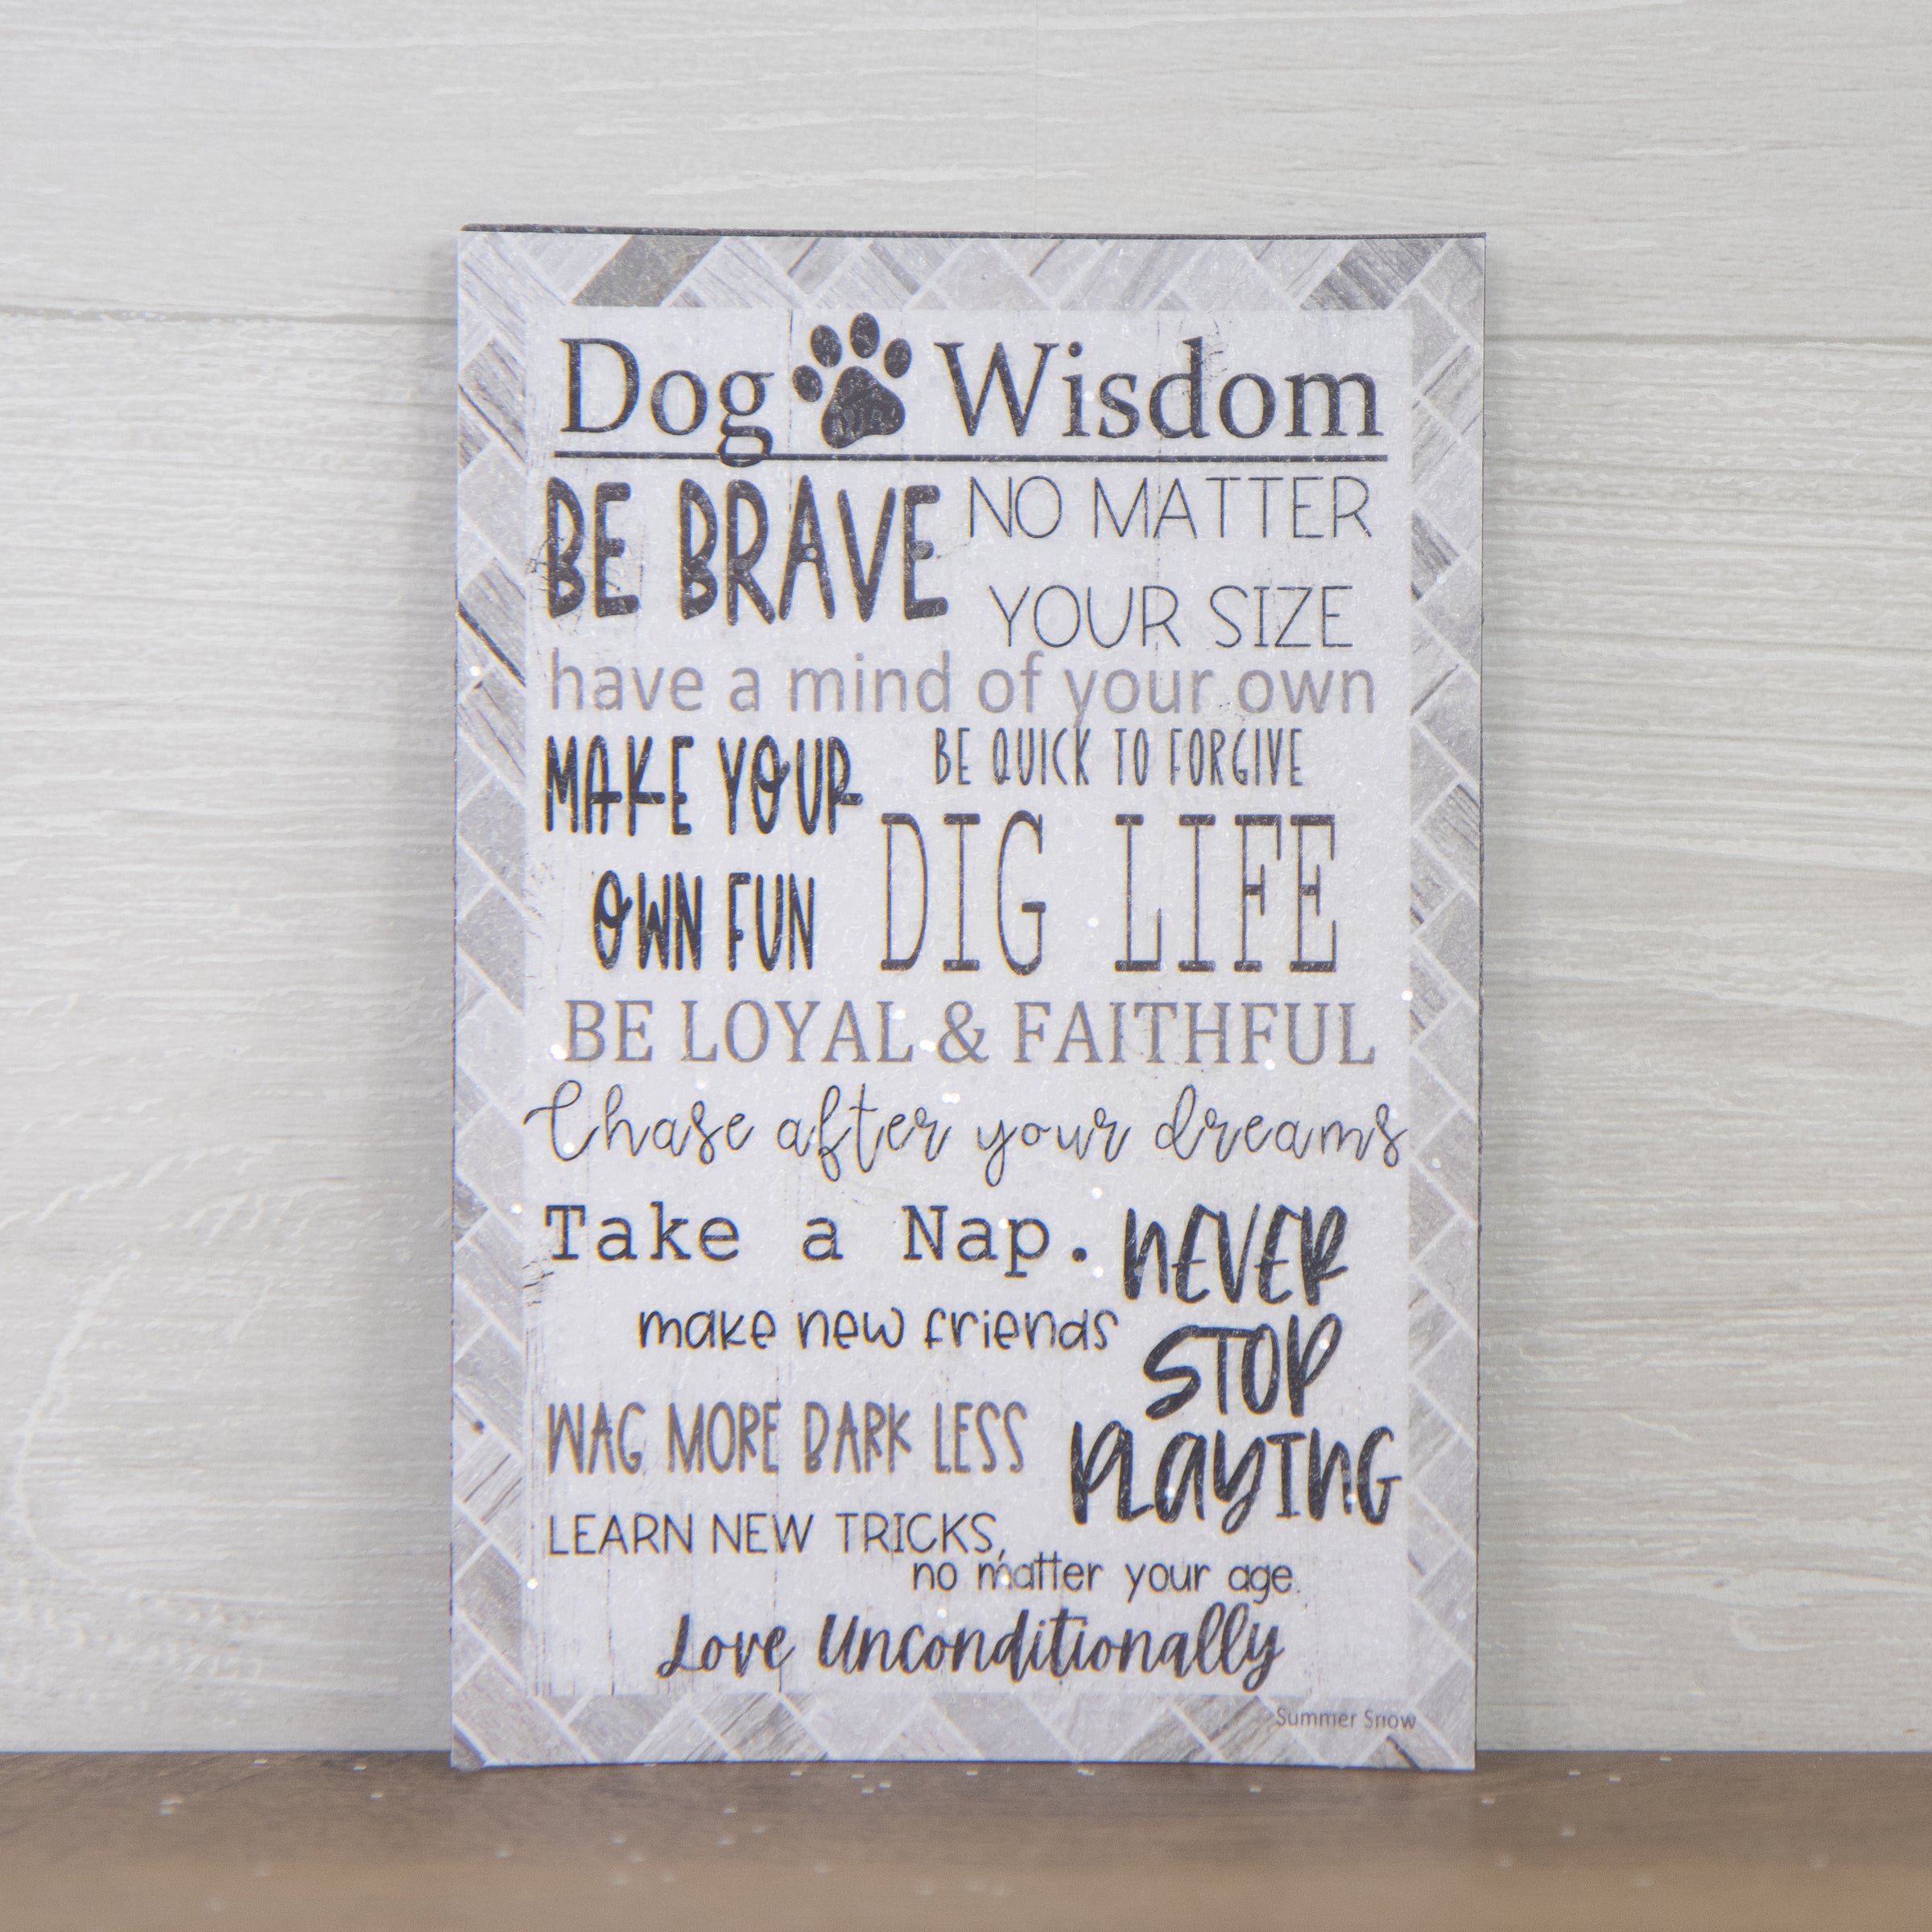 Dog Wisdom
BE BRAVE NO MATTER
YOUR SIZE
have a mind of your own
MAKE YOUR
OWN FUN
BE QUICK TO FORGIVE
DIG LIFE
BE LOYAL & FAITHFUL
Chase after your dreams
Take a Nap.
make new friends
NEVER
STOP
PLAYING
WAG MORE BARK LESS
LEARN NEW TRICKS,
no matter your age.
Love Unconditionally
Summer Snow